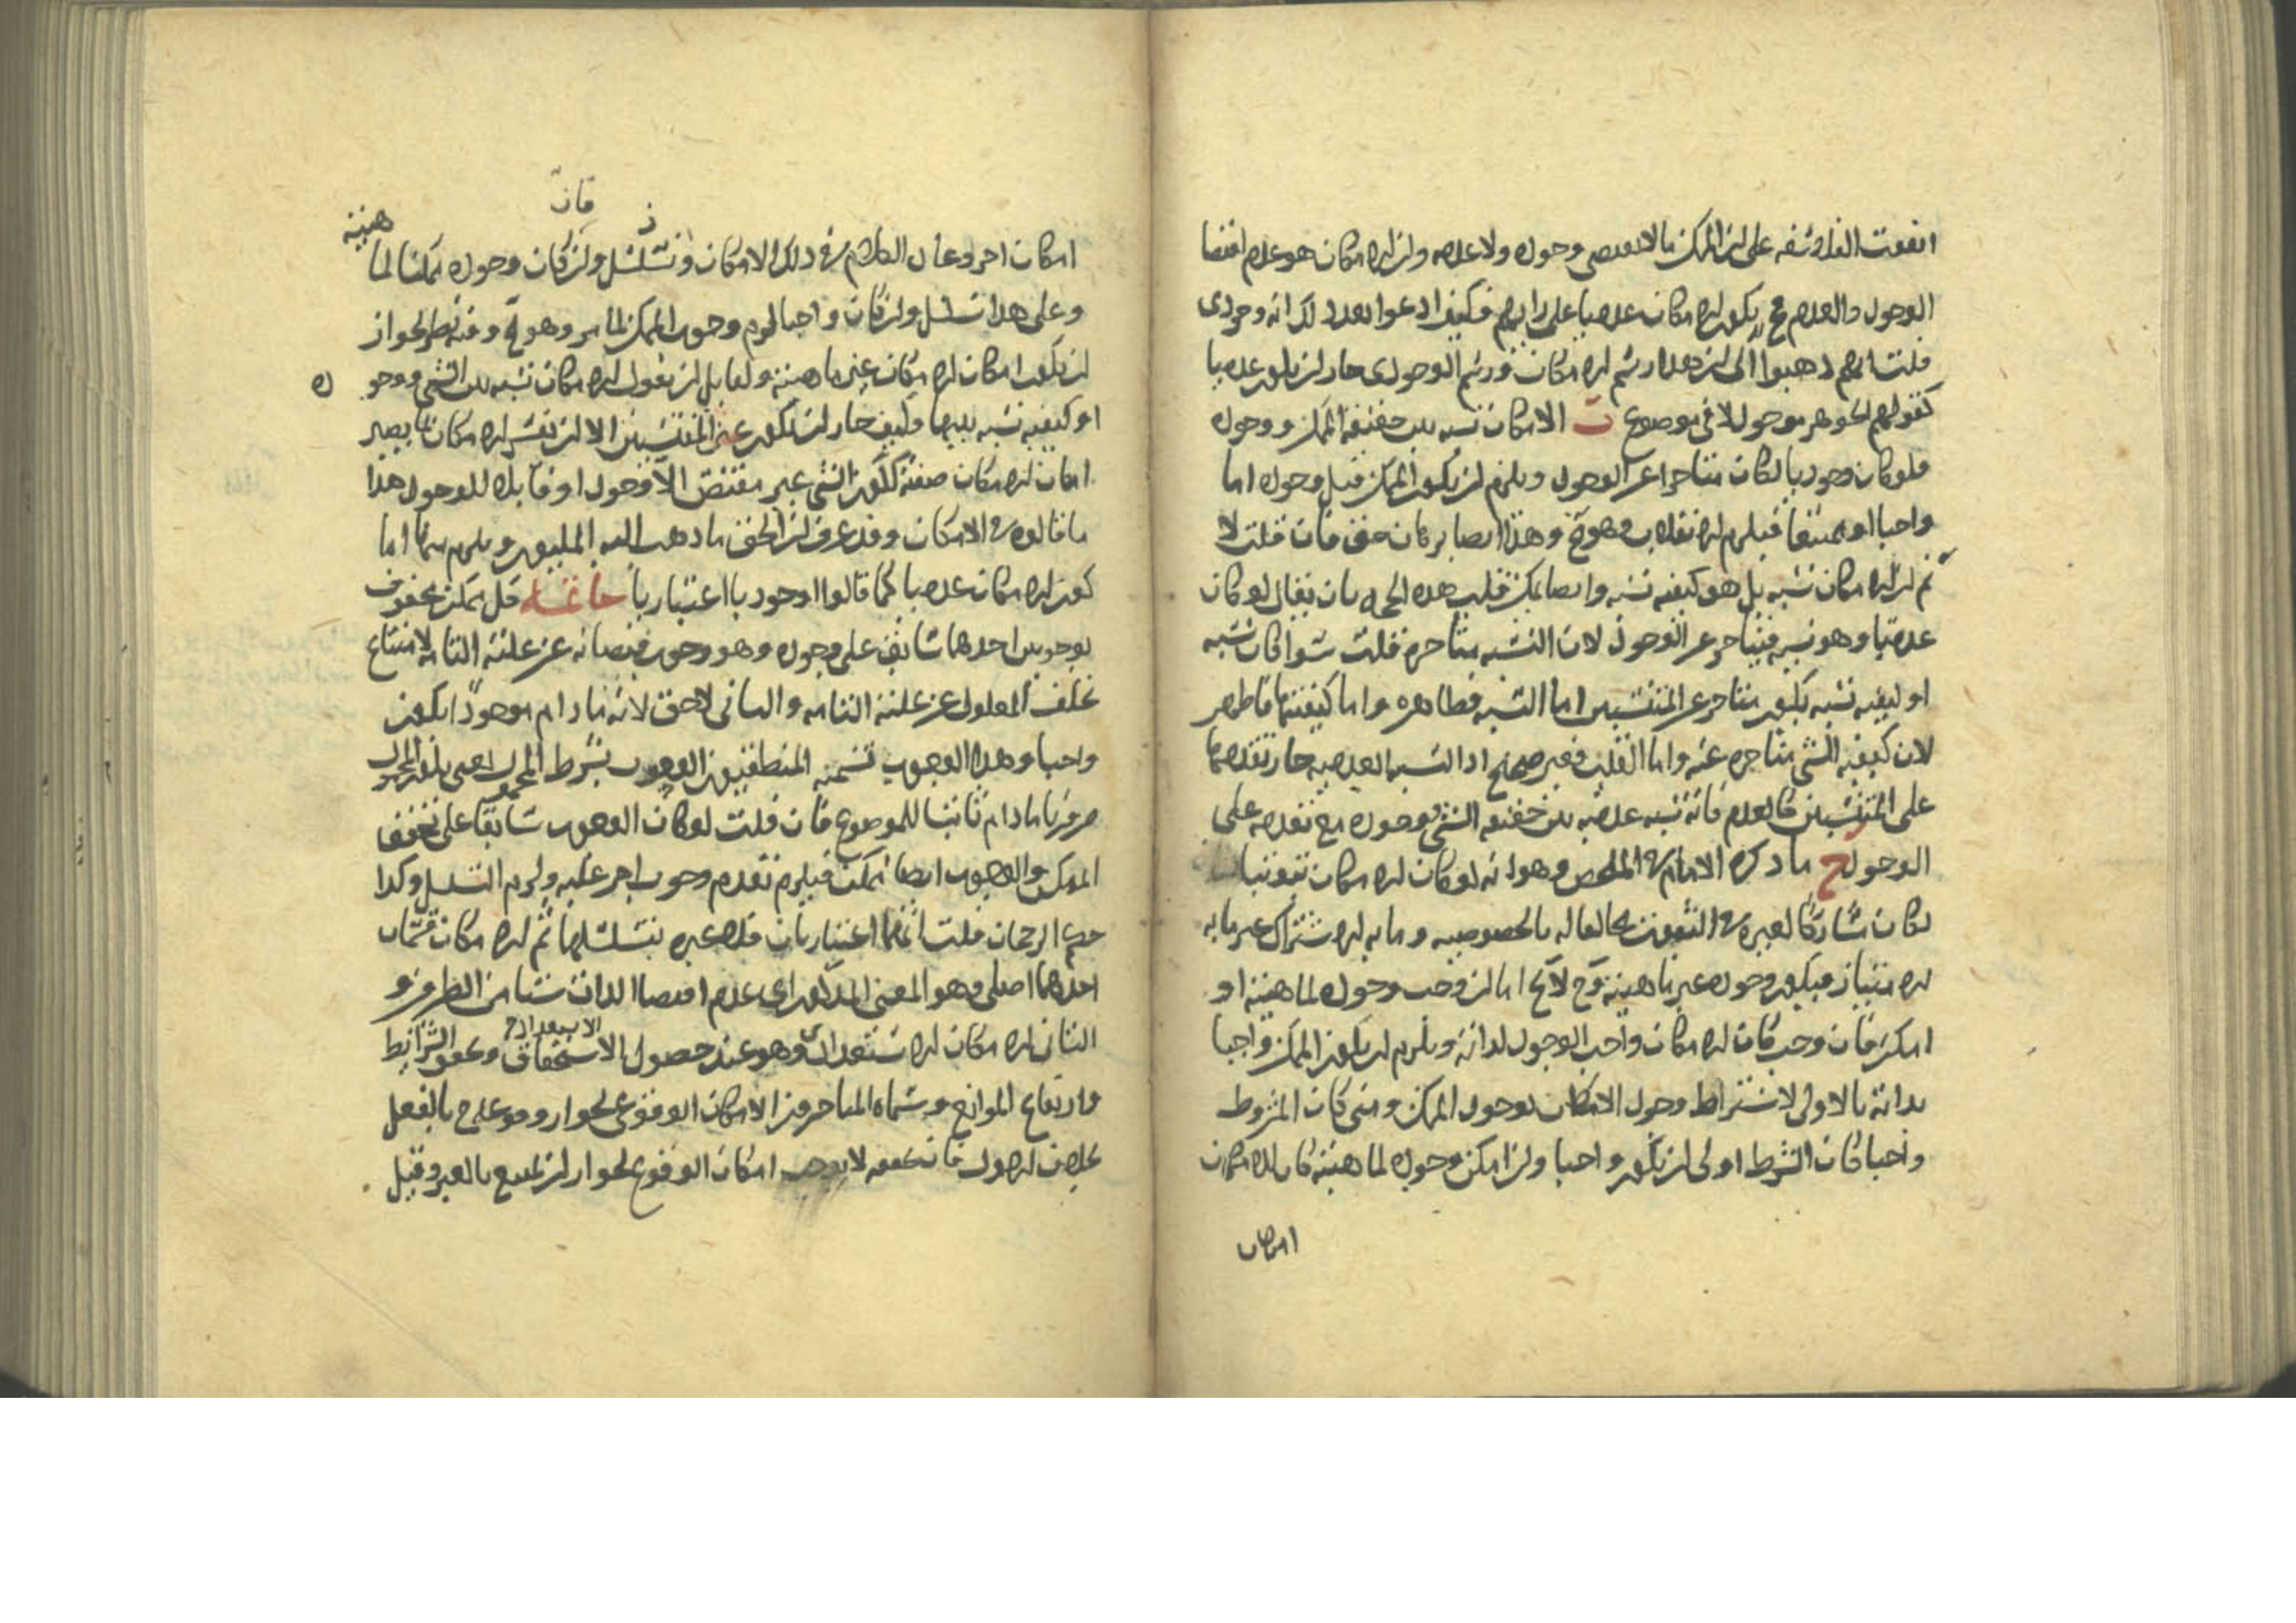 اتفقت الفلاسفة على ان الممكن ما لا يقتضى وجوده ولا عدمه وان الامكان هو عدم اقتضا
الوجود والعدم فح يكون الامكان عدميا على رايهم فكيف ادعوا بعد ذلك انه وجودى
قلت انهم ذهبوا الى ان هذا رسم الامكان ورسم الوجودى جاز ان يكون عدميا
كقولهم الجوهر موجود لا فى موضوع ب الامكان نسبه بين حقيقه الممكن ووجوده
فلو كان وجوديا لكان متاخرا عن الوجود ويلزم ان يكون الممكن قبل وجوده اما
واجبا او ممتنعا فيلزم الانقلاب وهو مح وهذا ايضا برهان حق فان قلت لا
ثم ان الامكان نسبه بل هو كيفيه نسبه وايضا يمكن قلب هذه الحجه بان يقال لو كان
عدميا وهو نسبه فيتاخر عن الوجود لان النسبه متاخره قلت سوا كان نسبه
او كيفيه نسبه يكون متاخرا عن المنتسبين اما النسبه فظاهره واما كيفيتها فاظهر
لان كيفيه الشى متاخره عنه واما القلب فغير صحيح اذ النسبه العدميه جاز تقدمها
على المنتسبين كالعدم فانه نسبه عدميه بين حقيقه الشى ووجوده مع تقدمه على
الوجود ج ما ذكره الامام فى الملخص وهو انه لو كان الامكان ثبوتيا
لكان مشاركا لغيره فى الثبوت مخالفا له بالخصوصيه وما به الاشتراك غير ما به
الامتياز فيكون وجوده غير ماهيته وح لا يخ اما ان وجب وجوده لماهيته او
امكن فان وجب كان الامكان واجب الوجود لذاته ويلزم ان يكون الممكن واجبا
بذاته بالاولى لاشتراط وجود الامكان بوجود الممكن ومتى كان المشروط
واجبا كان الشرط اولى ان يكون واجبا وان امكن وجوده لماهيته كان للامكان
امكان
فان
هيته
امكان اخر وعاد الكلام فى ذلك الامكان وتسلسل وان كان وجوده ممكنا لما
وعلى هذا تسلسل وان كان واجبا لزم وجوب الممكن لما مر وهو مح وفيه نظر لجواز
ان يكون امكان الامكان عين ماهيته ولقايل ان يقول الامكان نسبه بين الشى ووجو ده
او كيفيه نسبه بينهما وكيف جاز ان يكون عين المنتسبين الا ان يفسر الامكان بما يصير
امكان الامكان صفة ككون الشى غير مقتض لا وجود او قابله للوجود هذا
ما قالوه فى الامكان وقد عرف ان الحق ما ذهب اليه المليون ويلزم منها اما
كون الامكان عدميا كما قالوا او جوديا اعتباريا خاتمه كل ممكن محفوف
بوجوبين احدهما سابق على وجوده وهو وجوب فيضانه عن علته التامه لامتناع
تخلف المعلول عن علته التامه والثانى لاحق لانه ما دام موجودا يكون
واجبا وهذا الوجوب تسميه المنطقيون الوجوب بشرط المحمول اعنى يكون المحمول
ضروريا ما دام ثابتا للموضوع فان قلت لو كان الوجوب سابقا على تحقق
الممكن والوجوب ايضا ممكن فيلزم تقدم وجوب اخر عليه ولزم التسلسل وكذا
جميع الرجحان قلت انهما اعتباريان فلا عبره بتسلسلهما ثم الامكان قسمان
احدهما اصلى وهو المعنى المذكور اى عدم اقتضا الذات شيئا من الطرفين و
الثانى الامكان الاستعدادى وهو عند حصول الاستحقاق وتحقق الشرائط
الاستعدادى
وارتفاع الموانع وسماه المتاخرون الامكان الوقوعى لجواز وقوعه ح بالفعل
بخلاف الاول فان تحققه لا يوجب امكان الوقوع لجواز ان يمتنع بالغير وقيل